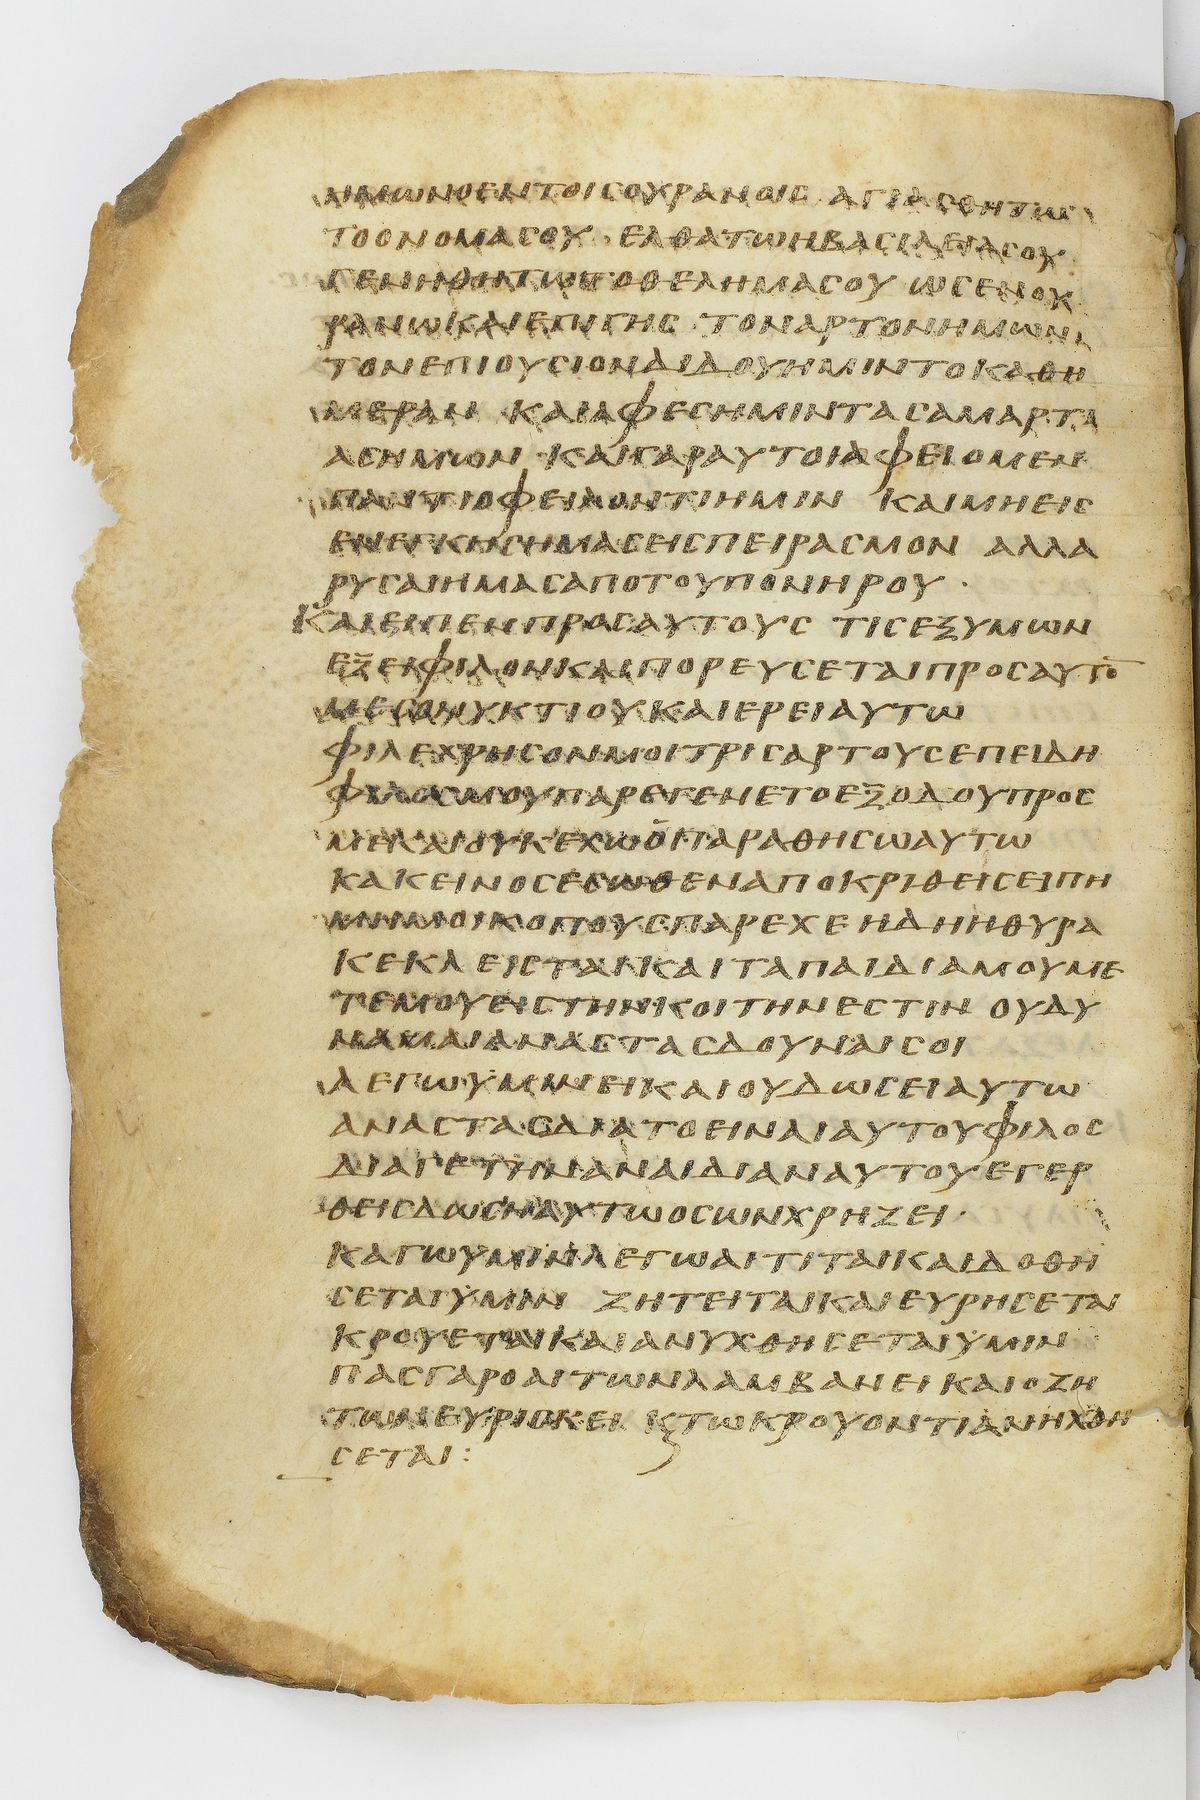 ημωνοεντοισουρανοισ αγιασθητω
τοονομασου ελθατωηβασιλειασου
γενηθητωτοθελημασου ωσενου
ρανωκαιεπιγησ τοναρτονημων
τονεπιουσιονδιδουημιντοκαθη
μεραν καιαφεσημιντασαμαρτι
ασημων καιγαραυτοιαφειομεν
παντιοφειλοντιημιν καιμηεισ
ενεγκησημασεισπειρασμον αλλα
ρυσαιημασαποτουπονηρου·
καιειπενπροσαυτουσ τισεξυμων
εξειφιλονκαιπορευσεταιπροσαυτο̅
μεσονυκτιουκαιερειαυτω
φιλεχρησονμοιτρισαρτουσεπειδη
φιλοσμουπαρεγενετοεξοδουπροσ
μεκαιουκεχωοπαραθησωαυτω
κακεινοσεσωθεναποκριθεισειπη
μημοικοπουσπαρεχεηδηηθυρα
κεκλεισταικαιταπαιδιαμουμε
τεμουειστηνκοιτηνεστιν ουδυ
ναμαιαναστασδουναισοι
λεγωυμινεικαιουδωσειαυτω
αναστασδιατοειναιαυτουφιλοσ
διαγετηναναιδιαναυτουεγερ
θεισδωσειαυτωοσωνχρηζει·
καγωυμινλεγωαιτιταικαιδοθη
σεταιυμιν ζητειταικαιευρησεται
κρουετεκαιανυχθησεταιυμιν
πασγαροαιτωνλαμβανεικαιοζη
τωνευρισκει ϗτωκρουοντιανηχθη
σεται: